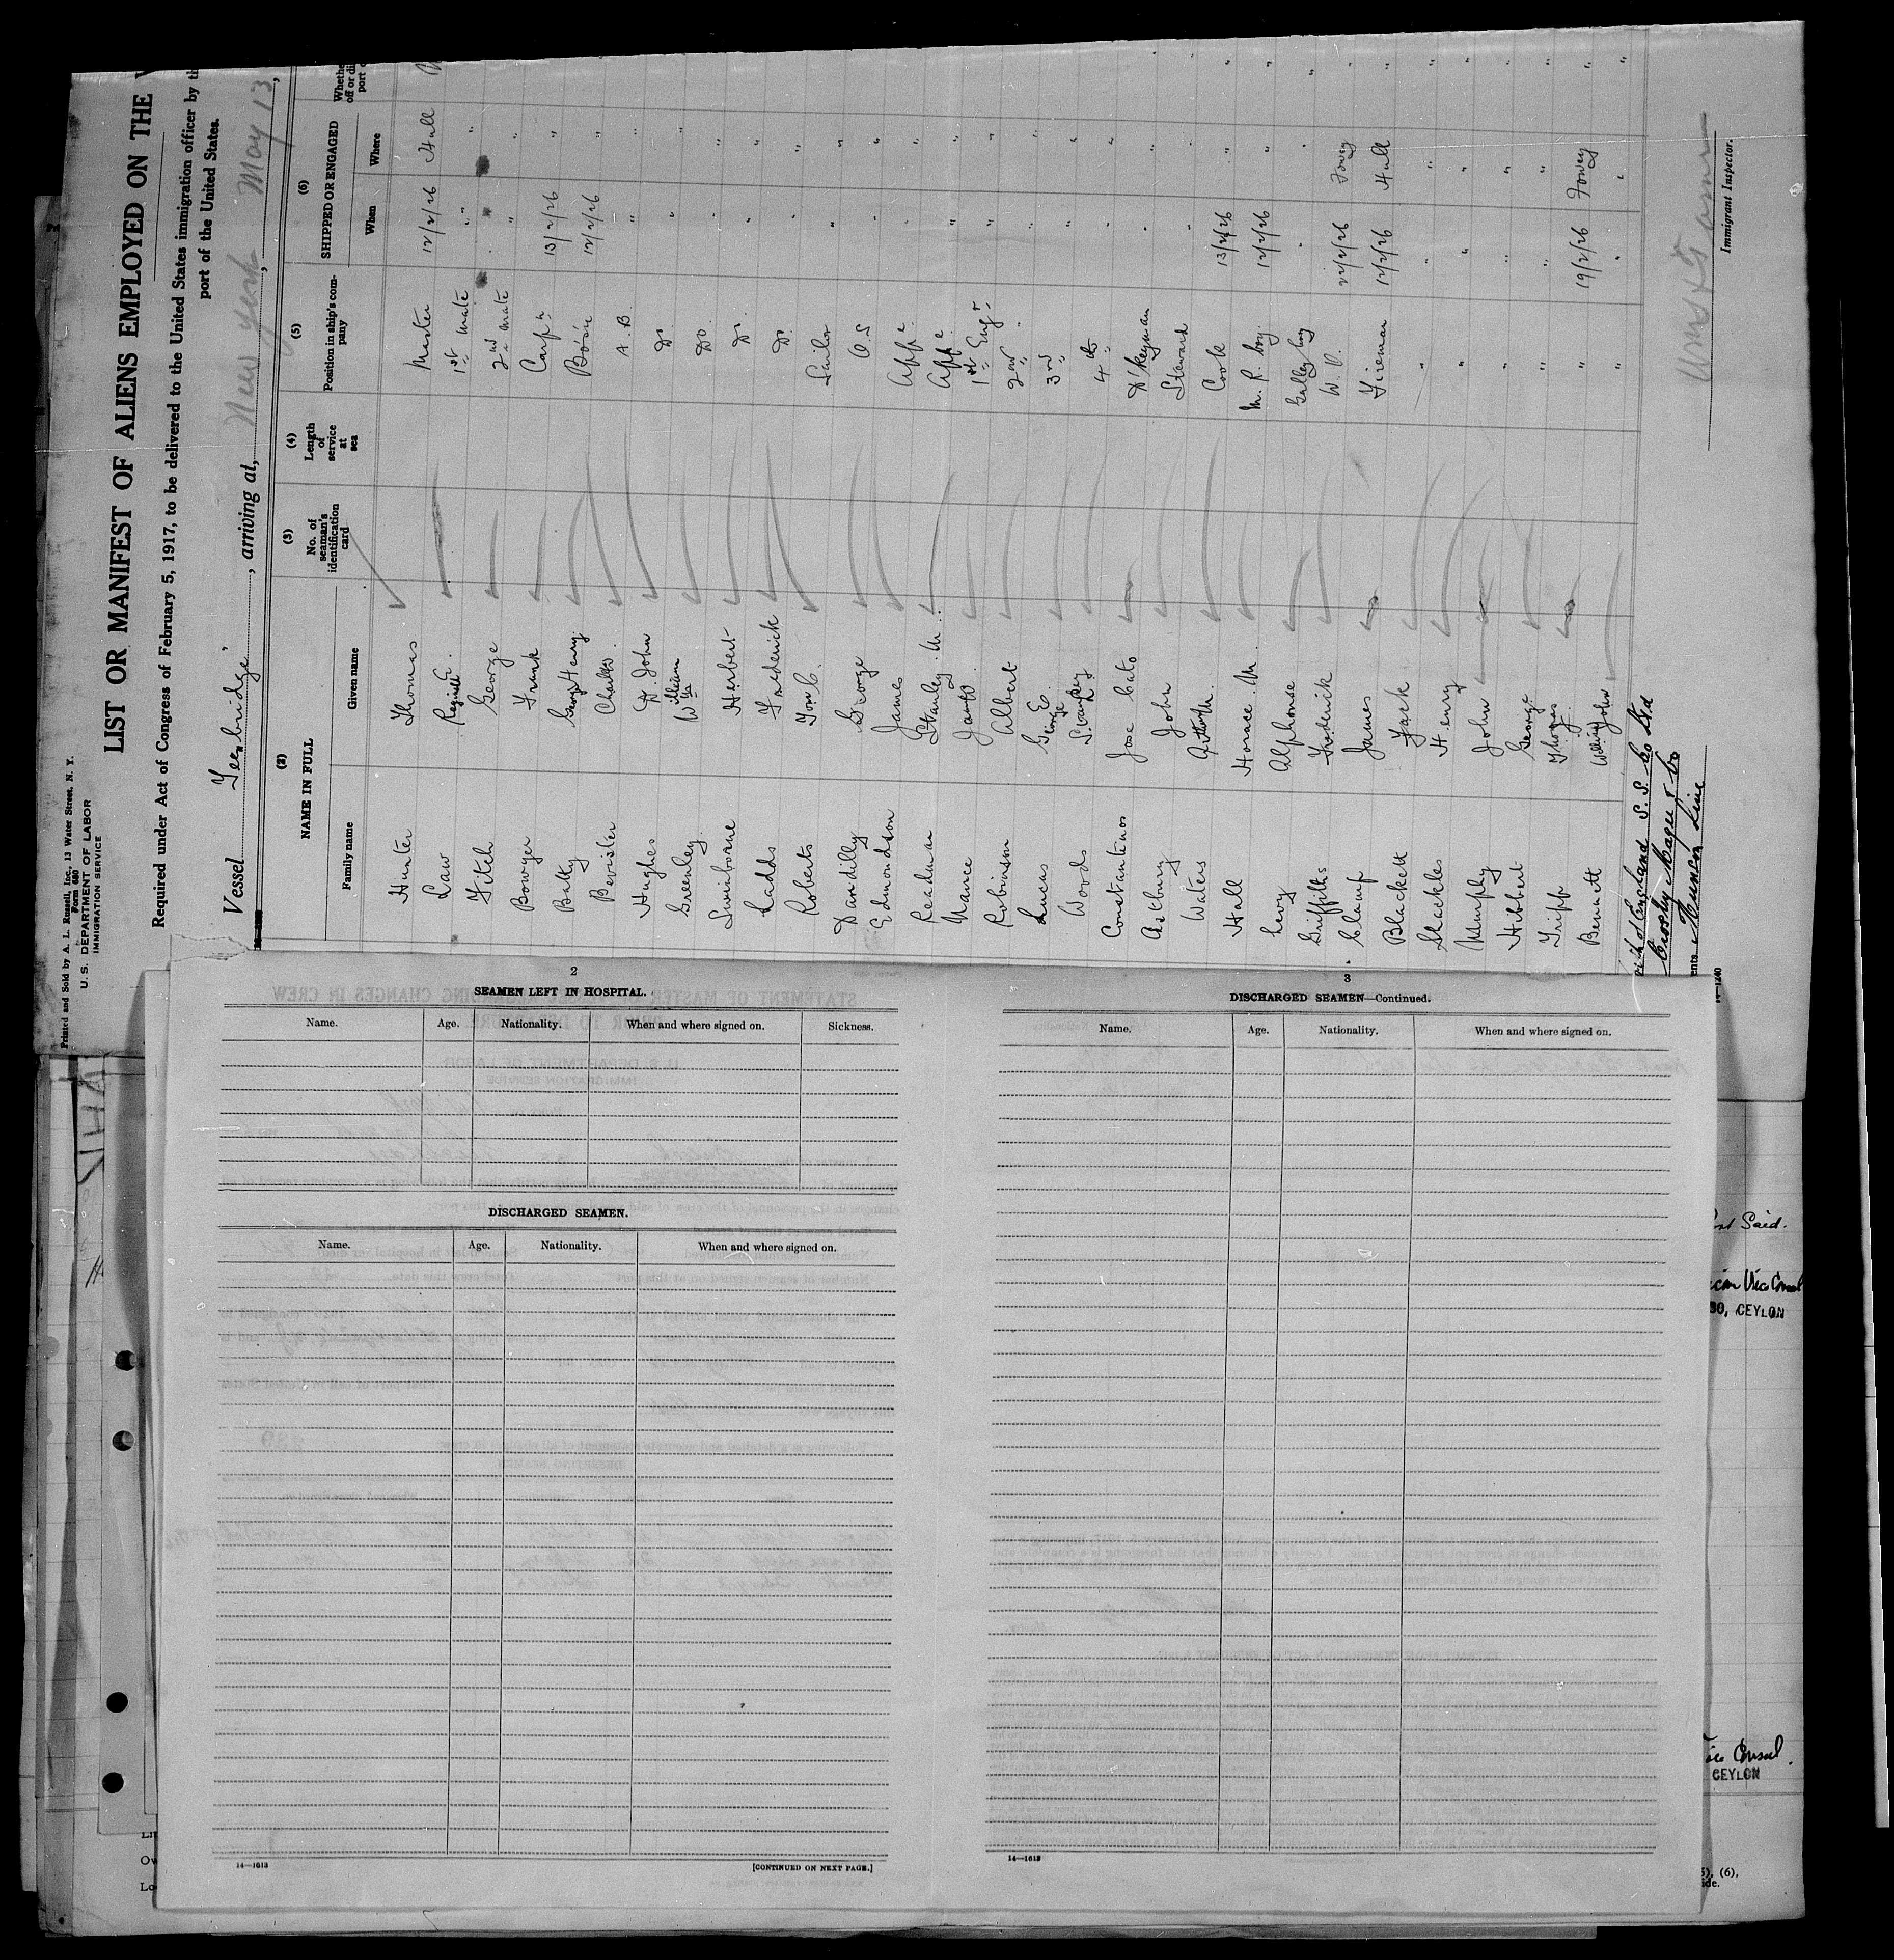 Printed and Sold by A. L. Russell, Inc., 13 Water Street, N. Y.
Form 680
U. S. DEPARTMENT OF LABOR
IMMIGRATION SERVICE
LIST OR MANIFEST OF ALIENS EMPLOYED ON THE
Required under Act of Congress of February 5, 1917, to be delivered to the United States immigration officer by th
port of the United States.
Vessel "Teesbridge", arriving at, New York, May 13,
(2) (3) (4) (5) (6)
NAME IN FULL No. of seaman's identification card Length of service at sea Position in ship's company SHIPPED OR ENGAGED Whethe
off or di
port o
Family name Given name When Where
Hunter Thomas Master 12/2/26 Hull
Law Reginald E. 1st Mate " "
Fitch George 2nd Mate " "
Bowyer Frank Carpr 13/2/26 "
Batty George Henry Bo'sn 12/2/26 "
Bevister Charles A.B. " "
Hughes D. John Do. " "
Greenley William Wm Do. " "
Swinborne Herbert Do. " "
Ladds Frederick Do. " "
Roberts Tom C. Sailor " "
Dandilly George O.S " "
Edmondson James Appe " "
Readman Stanley M. Appe " "
Mance James 1st Engr " "
Robinson Albert 2nd " " "
Lucas George E. 3rd " " "
Woods S. 4th " " "
Constantinos Jose Cato D'keyman " "
Astbury John Steward " "
Waters Arthur M. Cook 13/2/26 "
Hall Horace M. M. R. boy 12/2/26 "
Levy Alphonse Galley boy " "
Griffiths Frederick W. O. 22/2/26 Fowey
Clamp James Fireman 12/2/26 Hull
Blackett Jack " " "
Shackles Henry " " "
Murphy John " " "
Hibbert George " " "
Tripp Thomas " 19/2/26 Fowey
Bennett William John " " "
of England S. S. Co Ltd
Crosby Magee & Co
ents Munson Line
14-1240
Immigrant Inspector.
2
SEAMEN LEFT IN HOSPITAL.
Name. Age. Nationality. When and where signed on. Sickness.
DISCHARGED SEAMEN.
Name. Age. Nationality. When and where signed on.
14—1613
[CONTINUED ON NEXT PAGE.]
3
DISCHARGED SEAMEN—Continued.
Name. Age. Nationality. When and where signed on.
14—1613
Port Said.
ican Vice Consul
BO, CEYLON
Vice Consul.
CEYLON
), (6),
ide.
Ow
Lo